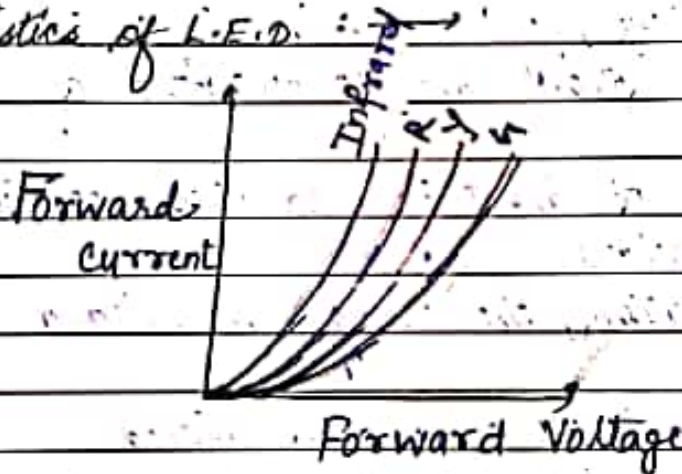 stics of L.E.D. :
Infrared
R Y
Forward
Current
Forward Voltage